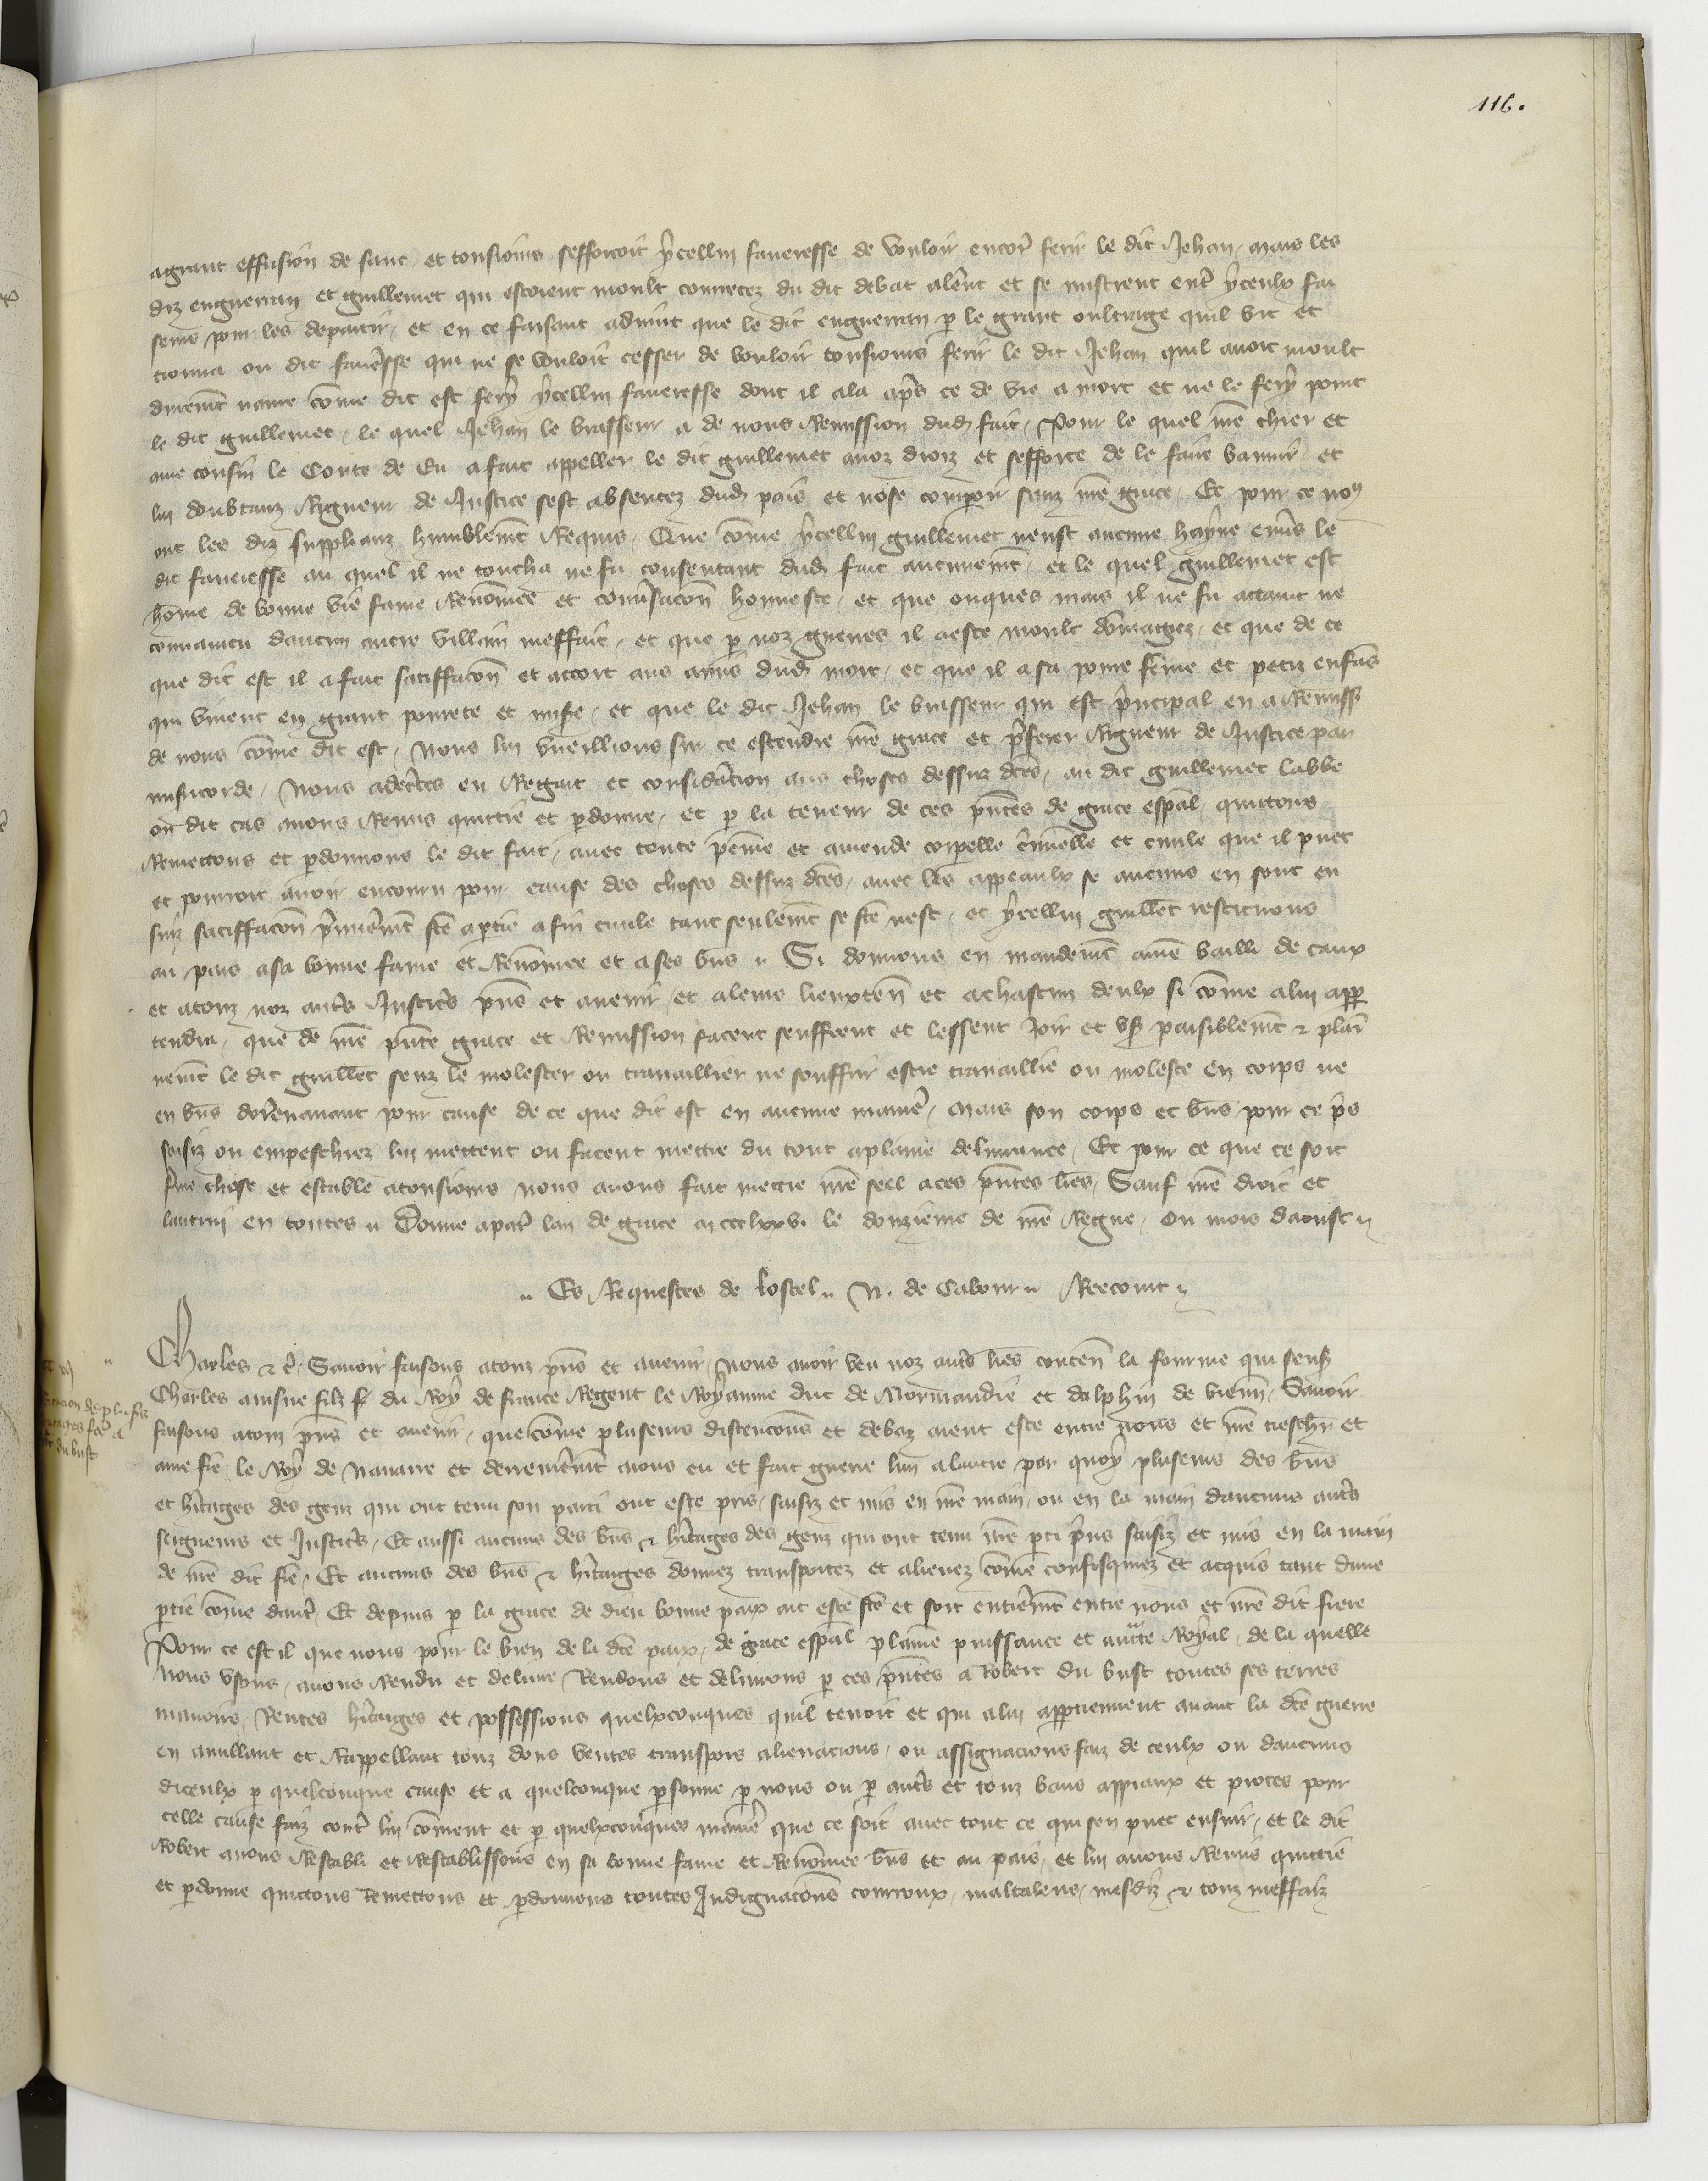 116.
agrant effusion de sanc et tousiours sefforcoit ycellui faueresse de vouloir encor ferir le dit Jehan, Mais les
diz enguerran et guillemet qui estoient moult courrecez du dit debat alerent et se mistrent entr yceulx fai
sens pour les departir, et en ce faisant aduint que le dit enguerran p le grant oultrage quil vit et
trouua ou dit fauesse qui ne se vouloit cesser de vouloir tousiours ferir le dit Jehan quil auoit moult
durement naure come dit est fery ycellui faueresse dont il ala aps ce de vie a mort et ne le fery point
le dit guillemet, le quel Jehan le brasseur a de nous Remission dud fait, Pour le quel nre chier et
ame cousin le Conte de Eu a fait appeller le dit guillemet a noz droiz et sefforce de le faire bannir, et
lui doubtanz Rigueur de Justice sest absentez dud pais et nose comparoir sanz nre grace, Et pour ce nous
ont les diz supplianz humblemt Requis, Que come ycellui guillemet neust aucune hayne enuers le
dit faueresse au quel il ne toucha ne fu consentant dud fait aucunemt, et le quel guillemet est
home de bonne vie fame Renomee et conuersacon honneste, et que onques mais il ne fu attaint ne
conuaincu daucun autre villain meffait, et que p noz guerres il a este moult domagez, et que de ce
que dit est il a fait satiffacon et accort aus amis dud mort, et que il a sa poure feme et petiz enfans
qui viuent en grant pourete et misere, et que le dit Jehan le brasseur qui est principal en a Remission
de nous come dit est, Nous lui vueillions sur ce estendre nre grace et preferer Rigueur de Justice par
misericorde, Nous adecertes eu Regart et consideration aus choses dessuz dtes, au dit guillemet labbe
ou dit cas auons Remis quittie et pdonne, et p la teneur de ces pntes de grace espal, quittons
Remettons et pdonnons le dit fait, auec toute peine et amende corpelle criminelle et ciuile que il puet
et pourroit auoir encouru pour cause des choses dessuz dtes, auec les appeaulx se aucuns en sont en
suiz satiffacon premieremt fte a ptie a fin ciuile tant seulemt se fte nest, et ycellui guillet restituons
au pais a sa bonne fame et Renomee et a ses bns, Si donnons en mandemt au bailli de caux
et a touz noz auts Justices pns et auenir et a leurs lieuxten et a chascun deulx si come a lui apper
tendra, que de nre pnte grace et Remission facent seuffrent et lessent Joir et vser paisiblemt & plai
nemt le dit guillet senz le molester ou trauaillier ne souffrir estre trauaillie ou moleste en corps ne
en bns dorenauant pour cause de ce que dit est en aucune maniere, Mais son corps et bns pour ce pris
saisiz ou empeschiez lui mettent ou facent mettre du tout a plaine deliurance, Et pour ce que ce soit
ferme chose et estable a tousiours nous auons fait mettre nre seel a ces pntes lres, Sauf nre droit et
lautrui en toutes, Donne a paris lan de grace M ccclxxvi le douzieme de nre Regne, Ou mois daoust
Es Requestes de lostel, N. de Cabour, Recourt
Charles & c, Sauoir faisons a touz pns et auenir, Nous auoir veu noz auts lres conten la fourme qui sensuit
Charles ainsne filz du Roy de france Regent le Royaume duc de Normandie et dalphin de vienn, Sauoir
faisons a touz pns et auenir, que come pluseurs distencons et debaz aient este entre nous et nre treschier et
ame fre, le Roy de Nauarre et derrenieremt auons eu et fait guerre lun a lautre par quoy pluseurs des bns
et hitages des genz qui ont tenu son parti ont este pris, saisiz et mis en nre main, ou en la main daucuns auts
seigneurs et Justices, Et aussi aucuns des bns & hitages des genz qui ont tenu nre pti prins saisiz et mis en la main
de nre dit fre, Et aucuns des bns & hitaiges donnez transportez et alienez come confisquiez et acquis tant dune
ptie come dautre, Et depuis p la grace de dieu bonne paix ait este fte et soit entieremt entre nous et nre dit frere
Pour ce est il que nous pour le bien de la dte paix, de grace espal plaine puissance et aucte Royal, de la quelle
nous vsons, auons Rendu et deliure Rendons et deliurons p ces pntes a Robert du bust toutes ses terres
manoirs, Rentes hitaiges et possessions quelxconques quil tenoit et qui a lui apptiennent auant la dte guerre
en anullant et Rappellant touz dons ventes transpors alienacions, ou assignacions faiz de ceulx ou daucuns
diceulx p quelconque cause et a quelconque psonne p nous ou p auts et touz bans appeaux et proces pour
celle cause faiz contre lui coment et p quelxconques maniere que ce soit auec tout ce qui sen puet ensuir, et le dit
Robert auons Restabli et Restablissons en sa bonne fame et Renomee bns et au pais, et lui auons Remis quittie
et pdonne quittons Remettons et pdonnons toutes Indignacons courroux, maltalens, mesdiz & touz meffaiz